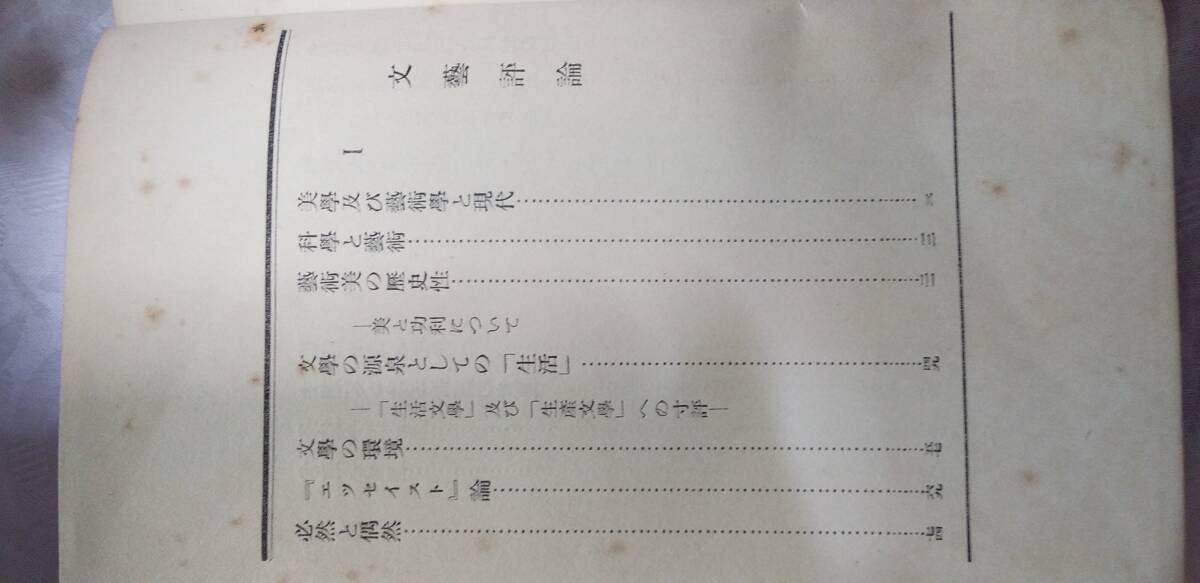 文藝評論
I
美學及び藝術學と現代
科學と藝術
藝術美の歷史性
―美と功利について
文學の源泉としての「生活」……四九
―「生活文學」及び「生產文學」への寸評―
文學の環境……五七
『エッセイスト』論……六九
必然と偶然……七四